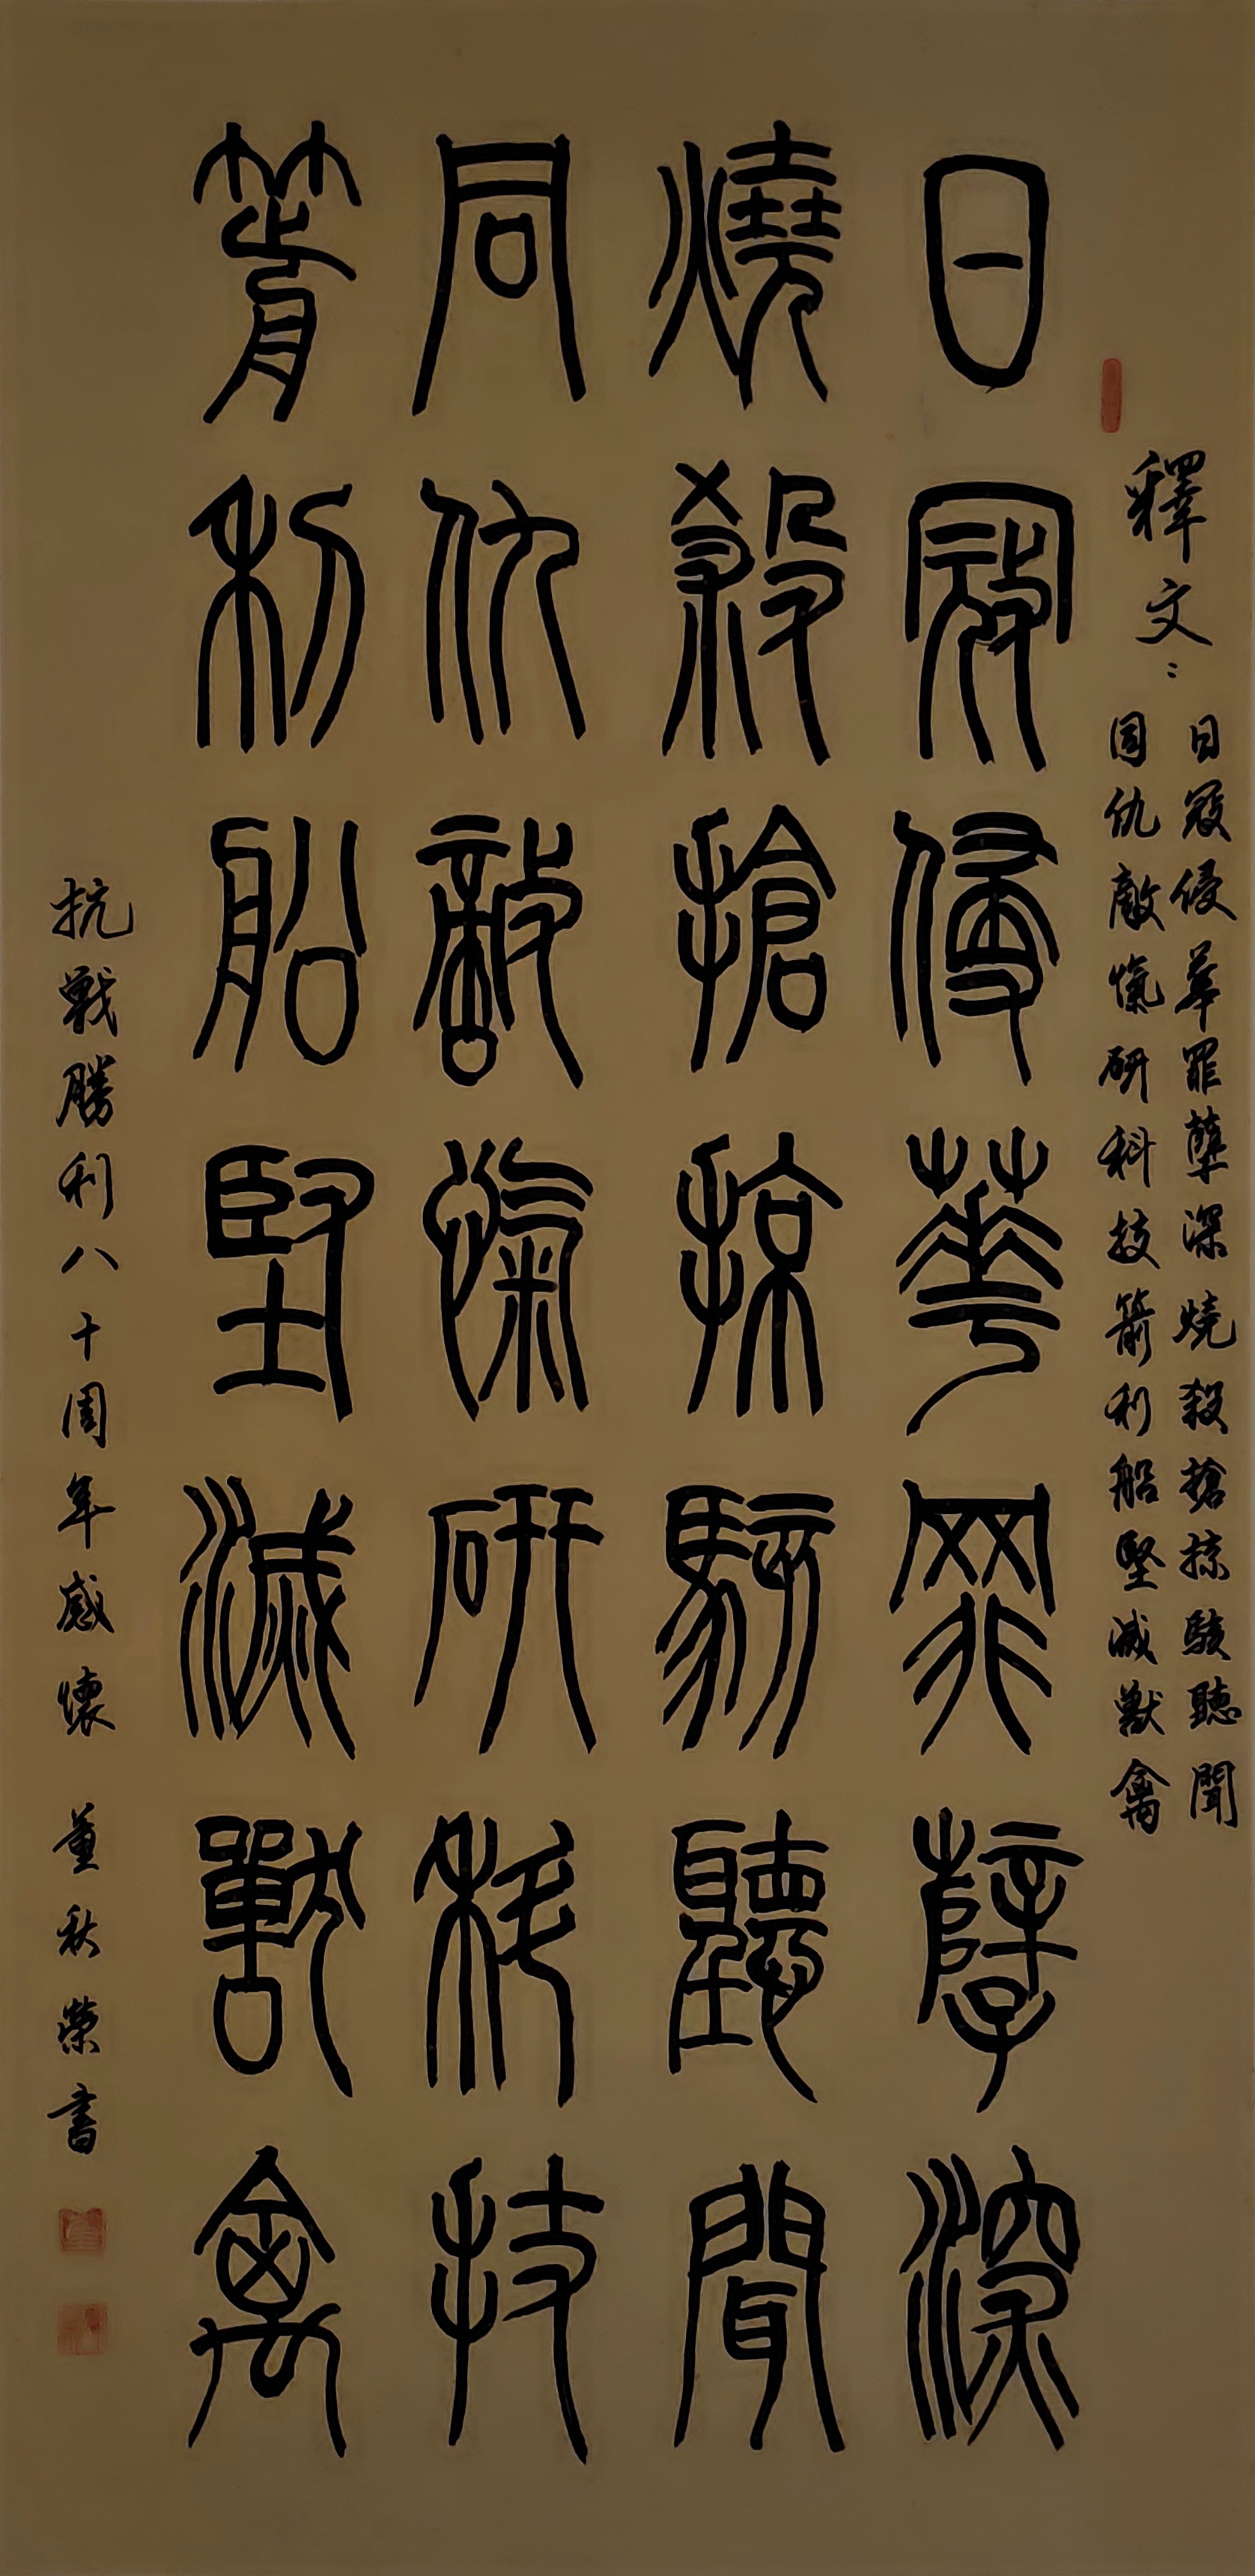 釋文：
日寇侵華罪孽深燒殺搶掠駭聽聞
同仇敵愾研科技箭利船堅滅獸禽
日寇侵華罪孽深
燒殺搶掠駭聽聞
同仇敵愾研科技
箭利船堅滅獸禽
抗戰勝利八十周年感懷 董秋榮書